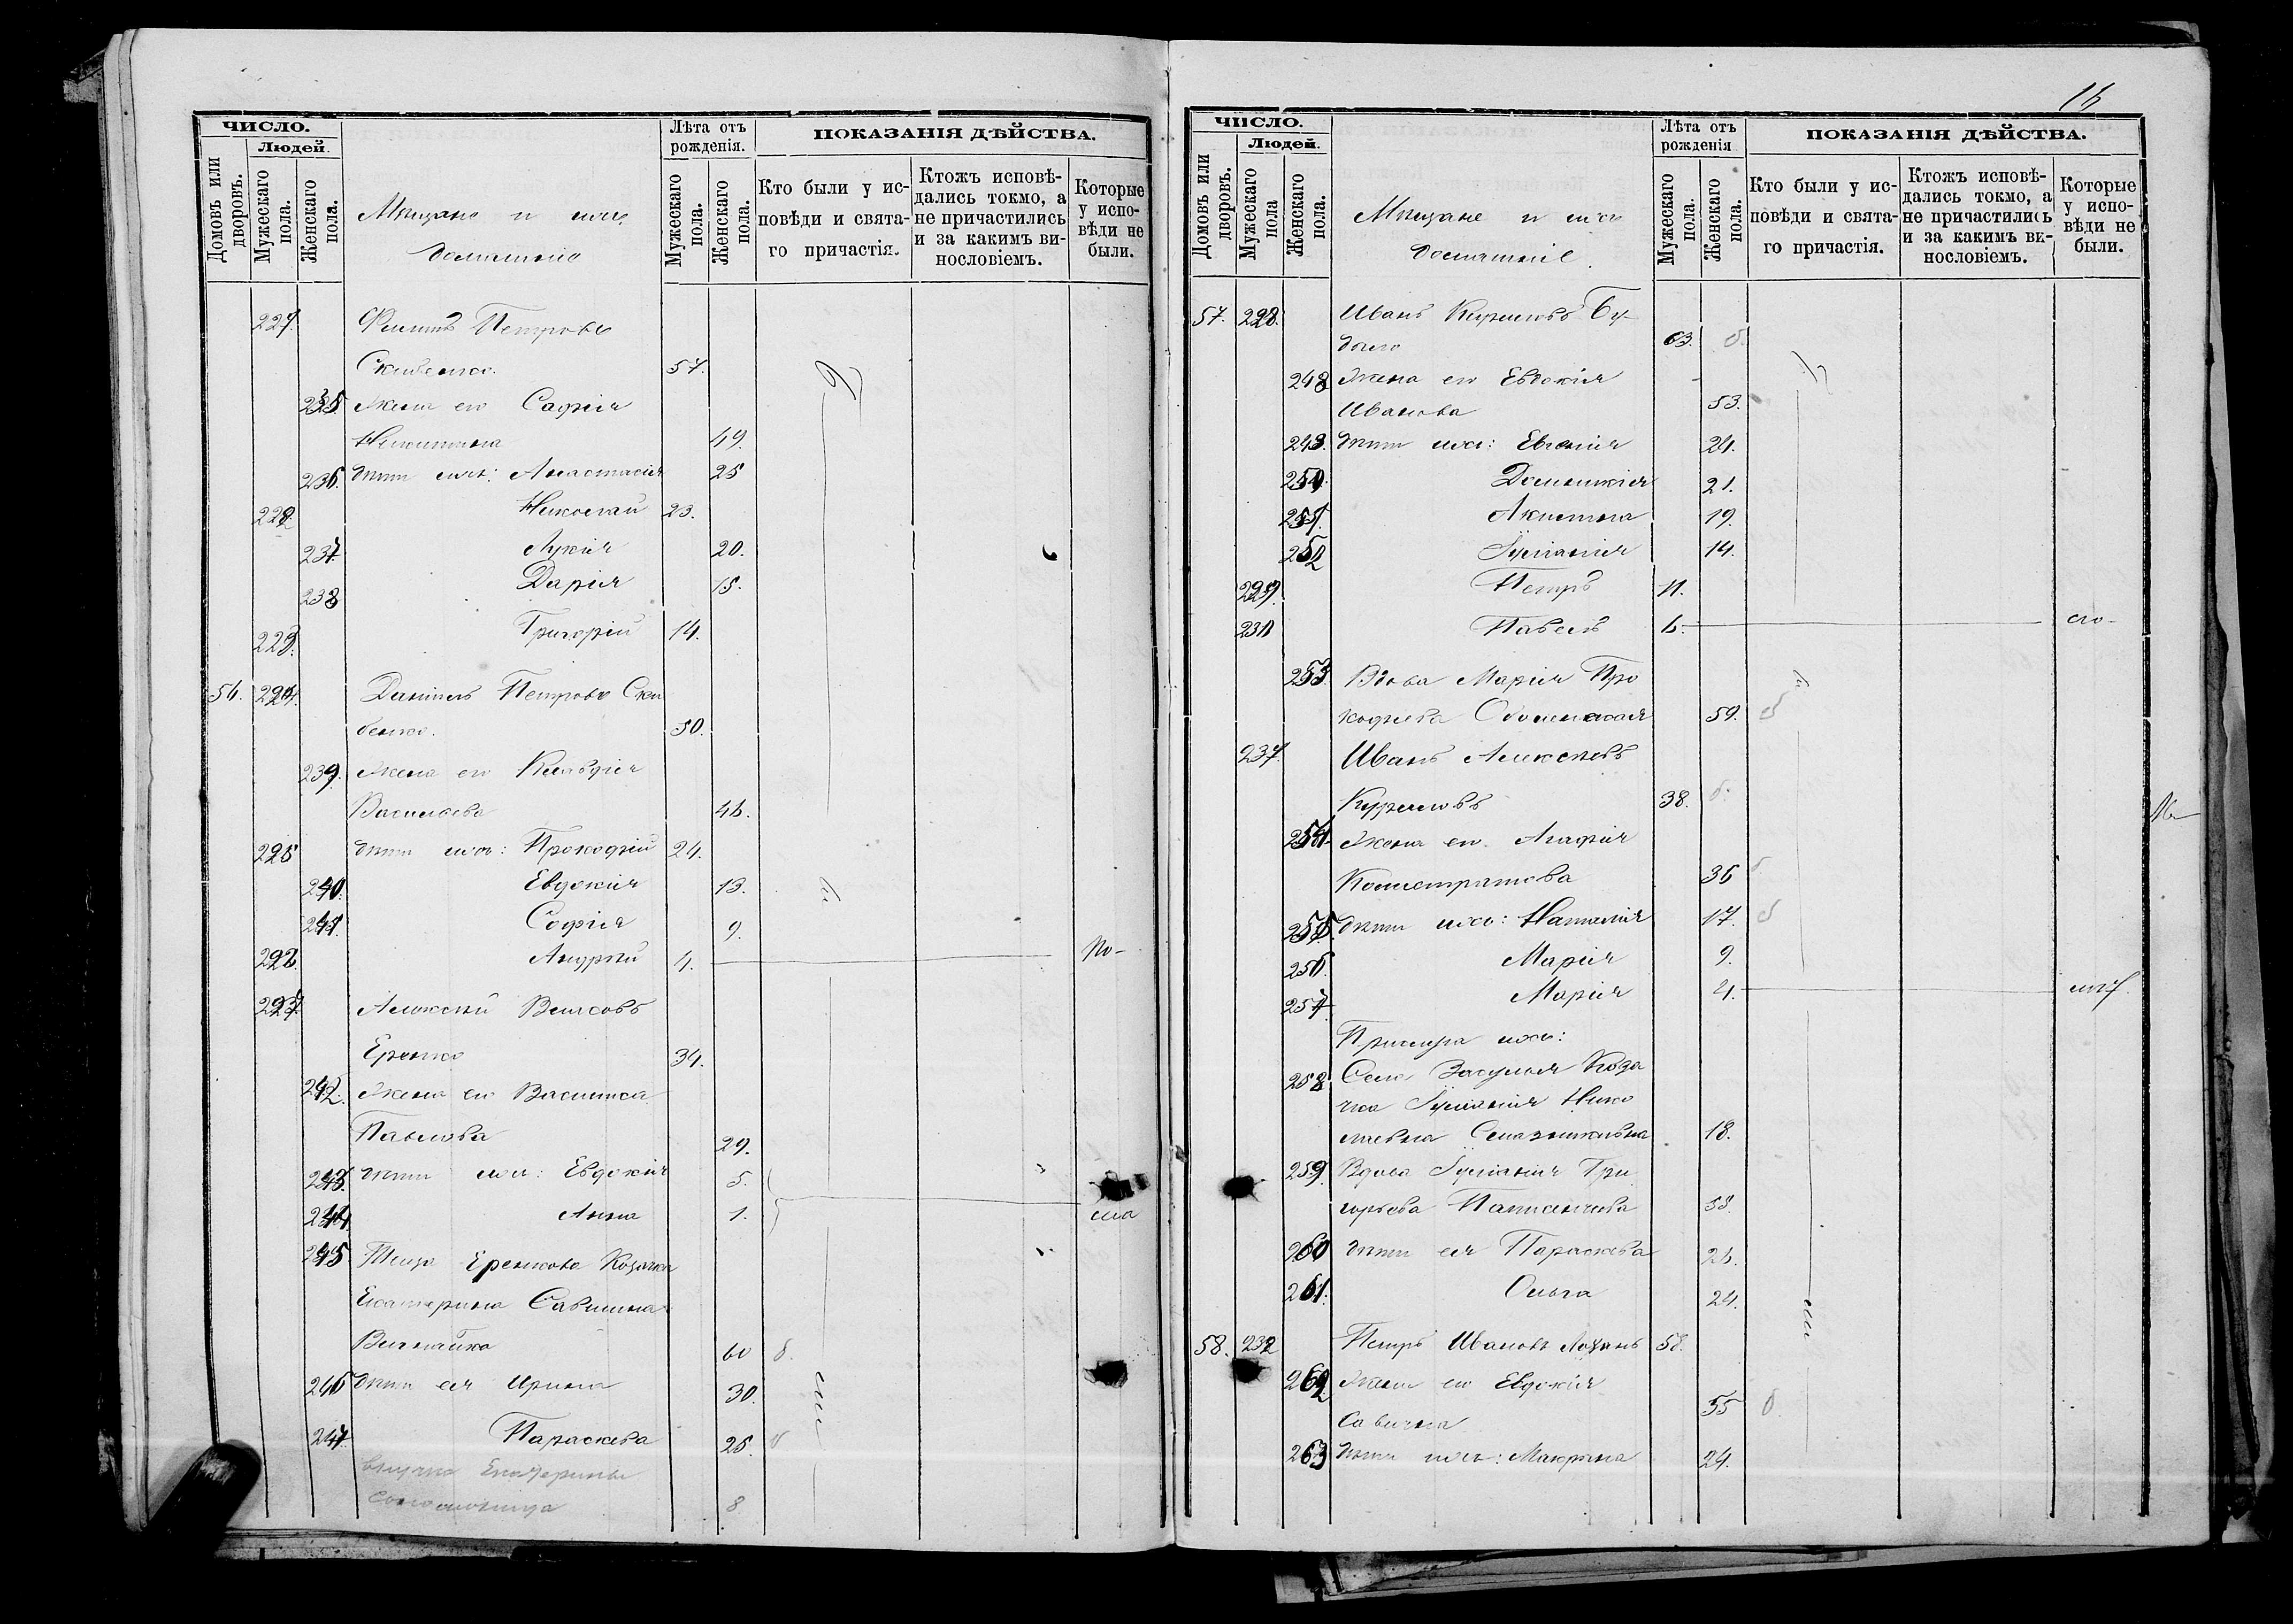 ЧИСЛО.
Людей.
Домовъ или дворовъ.
Мужескаго пола.
Женскаго пола.
Мѣщане и ихъ
домашніе
Лѣта отъ рожденія.
Мужескаго пола.
Женскаго пола.
ПОКАЗАНІЯ ДѢЙСТВА.
Кто были у исповѣди и святаго причастія.
Ктожъ исповѣдались токмо, а не причастились и за какимъ винословіемъ.
Которые у исповѣди не были.
227. Филипъ Петровъ
Скибенко. 57.
235. Жена его Софія
Никитина 49.
236. дѣти ихъ: Анастасія 25
222. Николай 23.
237. Лукія 20.
238 Дарія 15.
223. Григорій 14.
56. 224. Даніилъ Петровъ Ски
бенко. 50.
239. Жена его Клавдія
Васильева 46.
225 дѣти ихъ: Прокофій 24.
240. Евдокія 13.
241. Софія 9.
226. Андрей 4.
227. Алексѣй Власовъ
Еренко 34.
242. Жена его Василиса
Павлова 29.
243. дѣти ихъ: Евдокія 5.
244. Анна 1.
245 Теща Еренкова Козачка
Екатерина Саввична
60 б.
246 дѣти ея Ирина 30.
247. Параскева 25.
внучка Екатерины
8
16
ЧИСЛО.
Людей.
Домовъ или дворовъ.
Мужескаго пола
Женскаго пола.
Мѣщане и ихъ
домашніе.
Лѣта отъ рожденія
Мужескаго пола.
Женскаго пола.
ПОКАЗАНІЯ ДѢЙСТВА.
Кто были у исповѣди и святаго причастія.
Ктожъ исповѣдались токмо, а не причастились и за какимъ винословіемъ.
Которые у исповѣди не были.
57. 228. Иванъ Кириловъ Бу-
63.
248 Жена его Евдокія
Иванова 53.
249. дѣти ихъ: Евгенія 24.
250. Домникія 21.
251. Акилина 19.
252 Іуліанія 14.
229. Петръ 11.
230 Павелъ 6.
253. Вдова Марія Про
кофіева 59.
231. Иванъ Алексѣевъ
Куриловъ 38.
254. Жена его Агафія
Калистратова 36
255. дѣти ихъ: Наталія 17.
256. Марія 9.
257 Марія 4.
ихъ:
258 Села Засулья Коза
чка Іуліанія Нико
лаевна 18.
259. Вдова Іуліанія Гри
горьева 58.
260 дѣти ея Параскева 26.
261. Ольга 24.
58. 232 Петръ Ивановъ 58.
262 Жена его Евдокія
Савична 55
263 дѣти ихъ: Макрина 24.